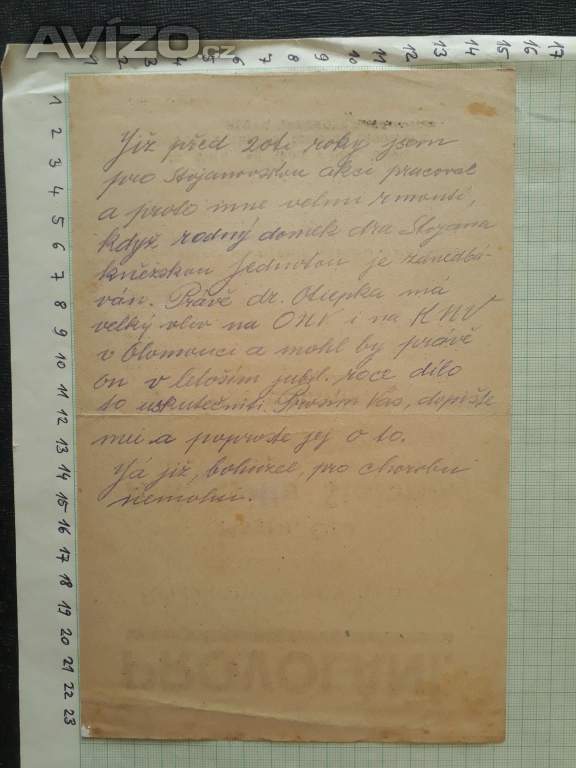 Avízo.cz
1 2 3 4 5 6 7 8 9 10 11 12 13 14 15 16 17
1
2
3
4
5
6
7
8
9
10
11
12
13
14
15
16
17
18
19
20
21
22
23
Již před 20ti roky jsem
pro Stojanovskou akci pracoval
a proto mne velmi rmoutí,
když rodný domek dra Stojana
kněžskou Jednotou je zanedbá-
ván. Právě dr. má
velký vliv na ONV i na KNV
v Olomouci a mohl by právě
on v letoším jubil. roce dílo
to uskutečniti. Prosím Vás, dopište
mu a poproste jej o to.
Já již, bohužel, pro chorobu
nemohu.
PROVOLÁNÍ